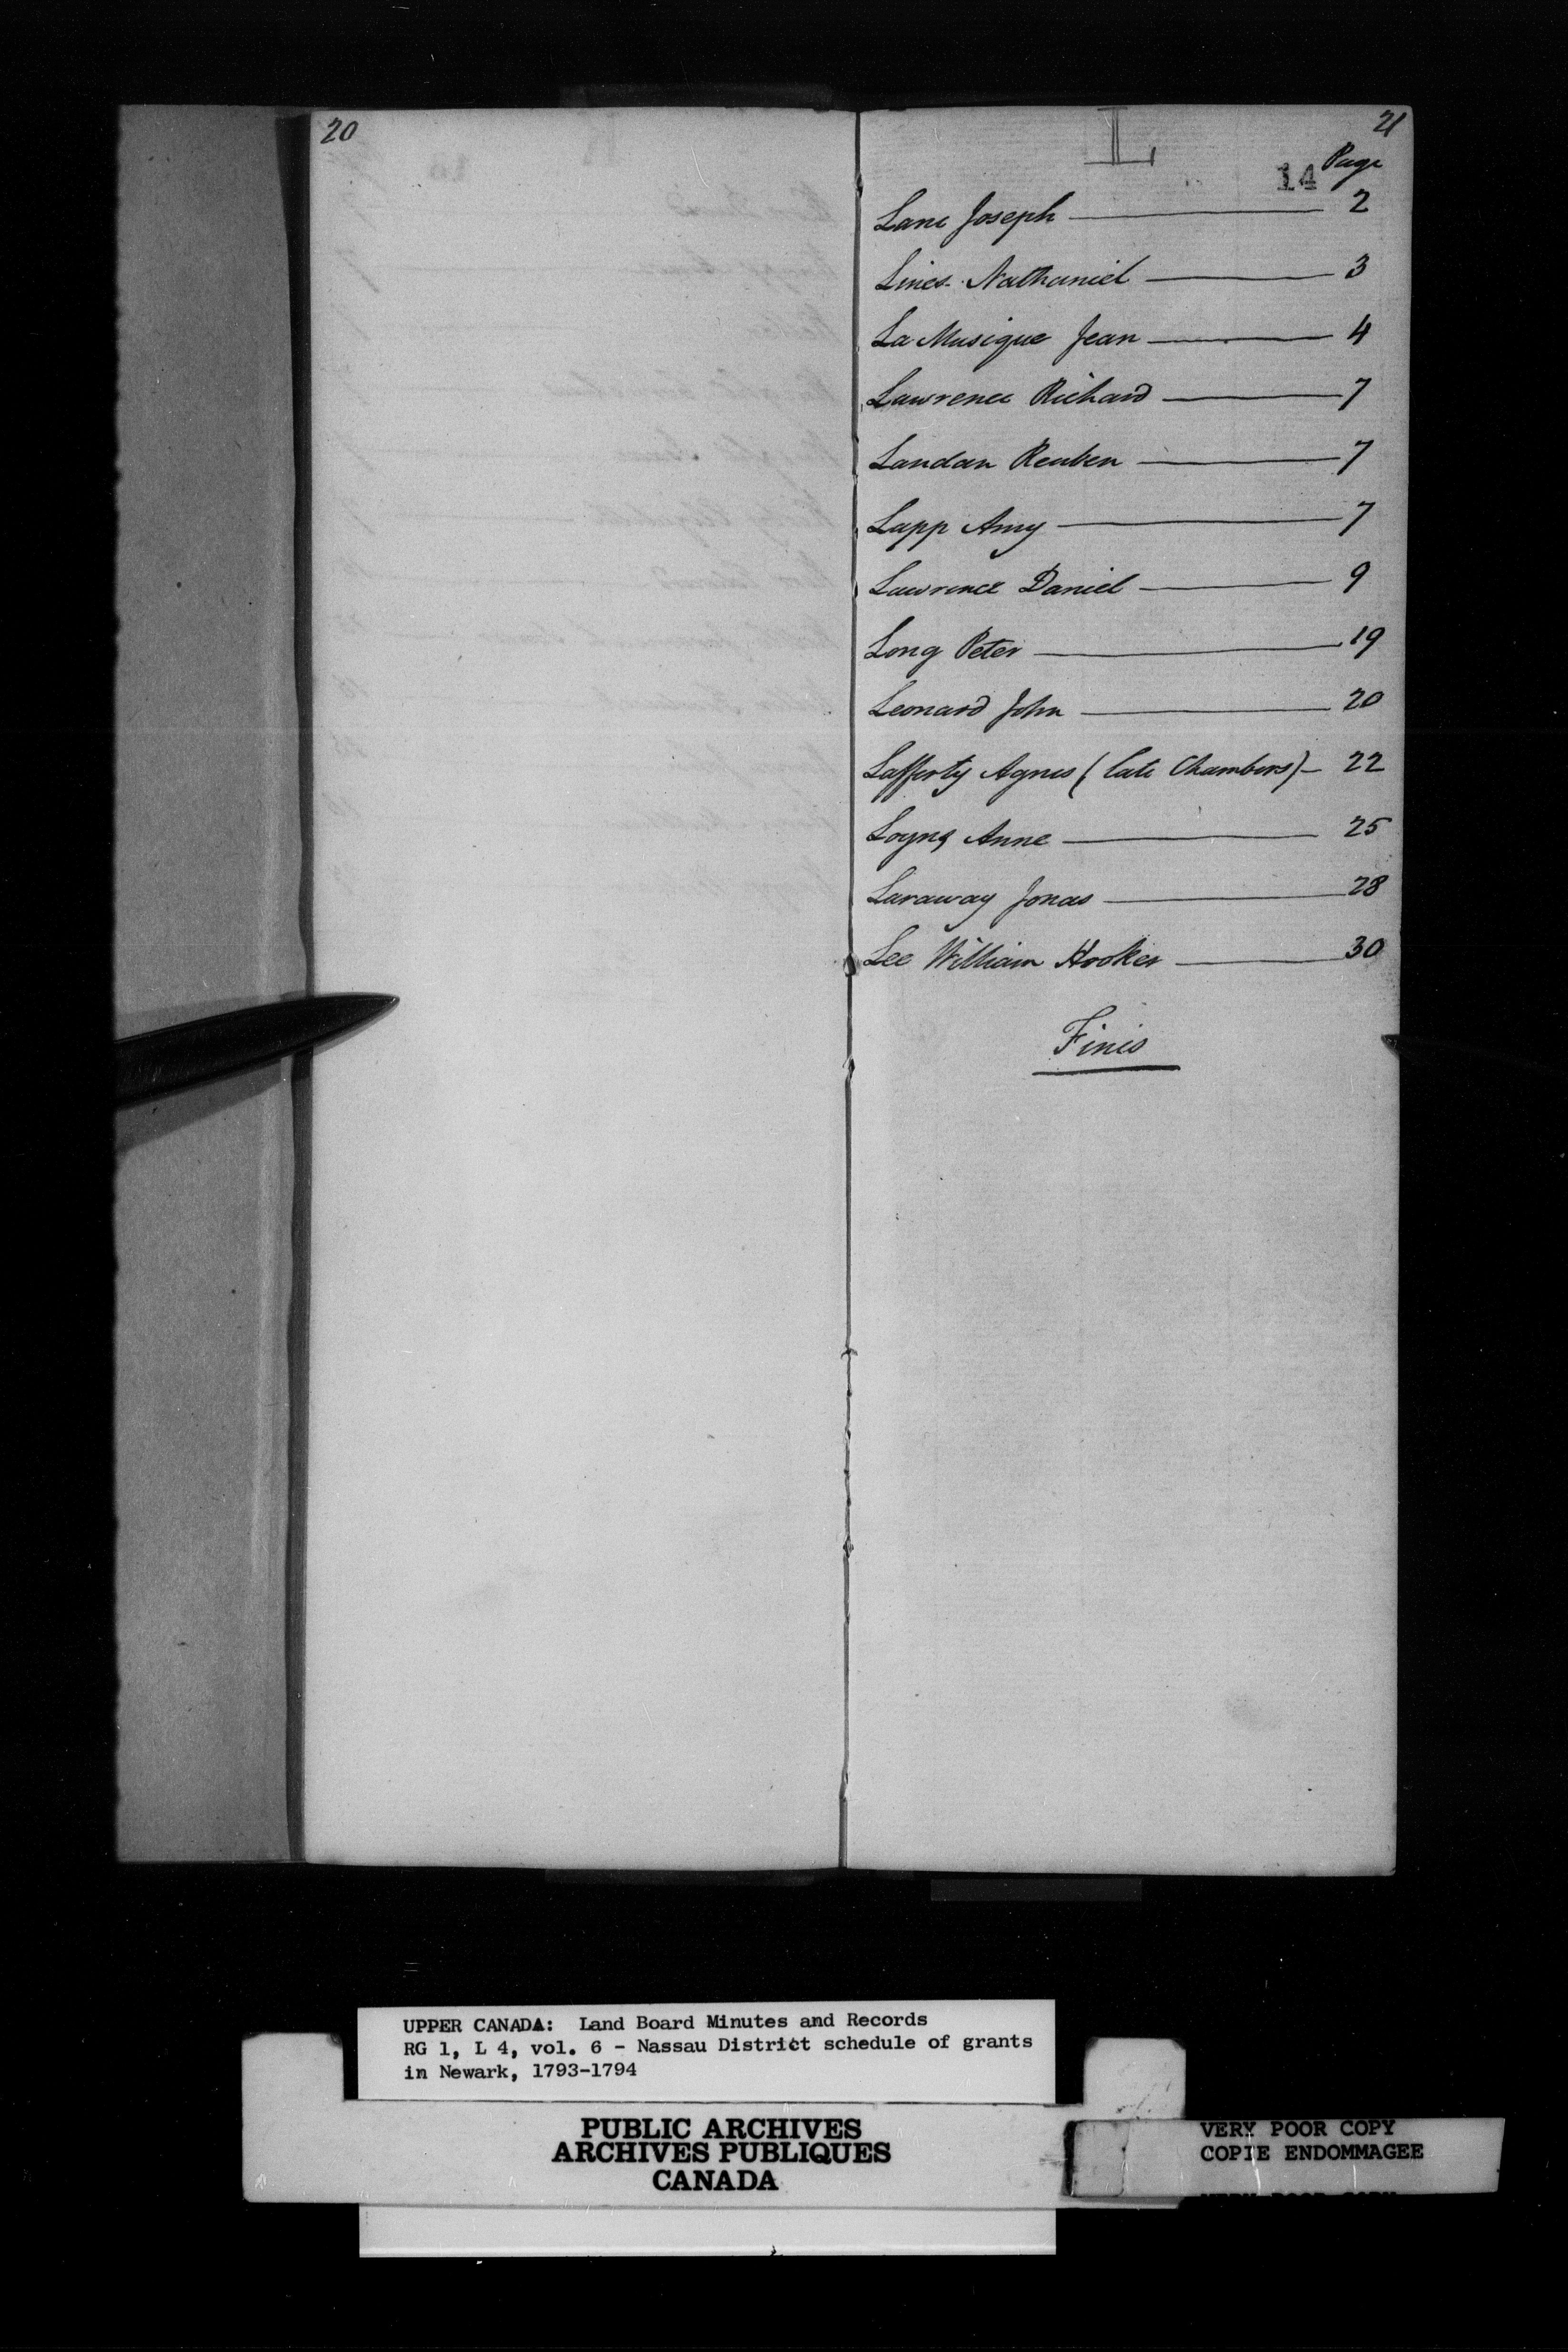 20
21
L
14
Page
Lane Joseph 2
Lines Nathaniel 3
La Musique Jean 4
Lawrence Richard 7
Landan Reuben 7
Lapp Amy 7
Lawrence Daniel 9
Long Peter 19
Leonard John 20
Lafferty Agnes (late Chambers) 22
Anne 25
Laraway Jonas 28
Lee William Hooker 30
Finis
UPPER CANADA: Land Board Minutes and Records
RG 1, L 4, vol. 6 - Nassau District schedule of grants
in Newark, 1793-1794
PUBLIC ARCHIVES
ARCHIVES PUBLIQUES
CANADA
VERY POOR COPY
COPIE ENDOMMAGEE